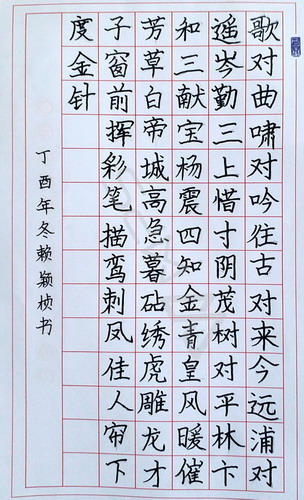 歌对曲啸对吟住古对来今远浦对
遥岑勤三上惜寸阴茂树对平林卞
和三献宝杨震四知金青皇风暖催
芳草白帝城高急暮砧绣虎雕龙才
子窗前挥彩笔描鸾刺凤佳人帘下
度金针
丁酉年冬赖颖桢书